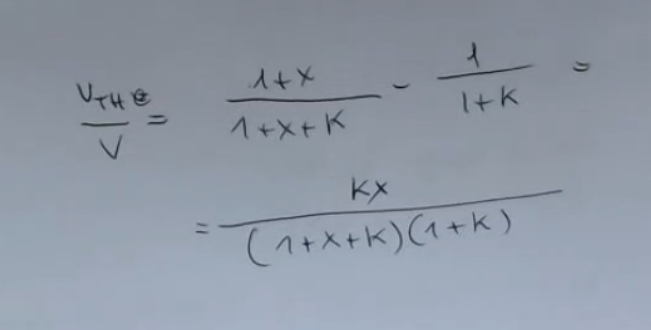 V_TH e / V = (1+x)/(1+x+K) - 1/(1+K) =
= Kx/((1+x+K)(1+K))